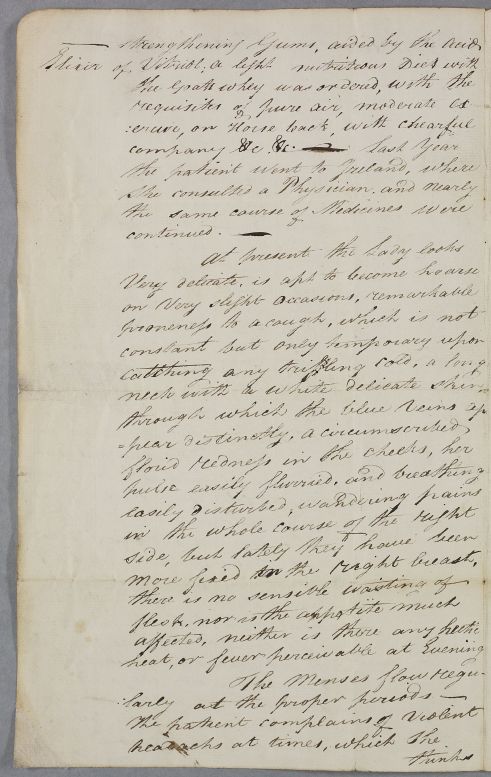 strengthening Gums, aided by the Acid
Elixir of Vitriol; a light nutritious Diet with
the Goats whey was ordered, with the
requisites of pure air, moderate ex
:ercise, on Horse back, with chearful
company &c &c. — last Year
the patient went to Ireland, where
she consulted a Physician, and nearly
the same course of Medicines were
continued. —
At present the Lady looks
Very delicate, is apt to become hoarse
on very slight occasions, remarkable
proneness to a cough, which is not
constant but only temporary upon
catching any trifling cold, a long
neck with a white delicate skin
through which the blue veins ap
=pear distinctly, a circumscribed
florid redness in the cheeks, her
pulse easily flurried, and breathing
easily disturbed, wandering pains
in the whole course of the right
side, but lately they have been
more fixed in the right breast,
there is no sensible wasting of
flesh, nor is the appetite much
affected, neither is there any hectic
heat, or fever perceivable at Evening
The Menses flow regu-
:larly at the proper periods —
The patient complains of violent
headachs at times, which she
thinks